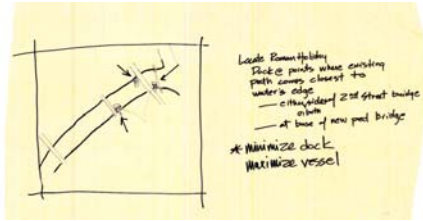 Locate Roman Holiday
Dock @ points where existing
path comes closest to
water's edge
— either side of 2nd street bridge
or both
— at base of new ped bridge
* minimize dock
maximize vessel